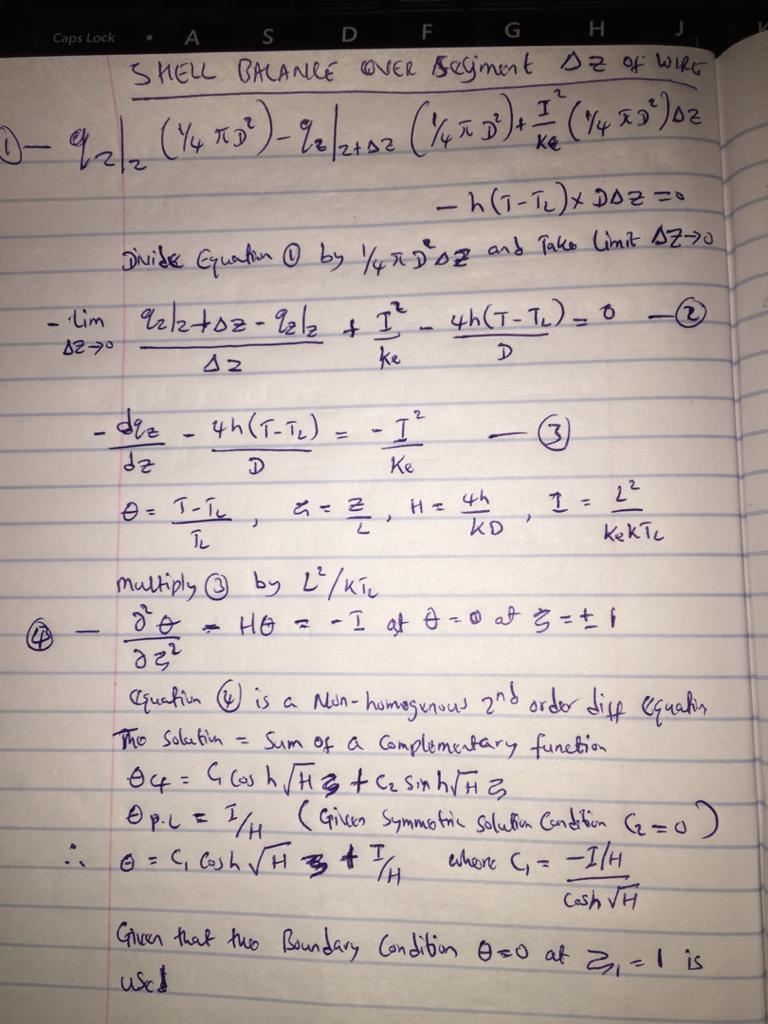 Caps Lock • A S D F G H J
SHELL BALANCE OVER Segment ΔZ of WIRE
① – qz|z (1/4 πD²) – qz|z+Δz (1/4 πD²) + I²/ke (1/4 πD²)ΔZ
– h(T-TL)πDΔZ = 0
Divide Equation ① by 1/4 πD²ΔZ and Take Limit ΔZ→0
– lim ΔZ→0 (qz|z+Δz – qz|z)/ΔZ + I²/ke – 4h(T-TL)/D = 0 — ②
– dqz/dz – 4h(T-TL)/D = – I²/Ke — ③
θ = (T-TL)/TL , ζ = Z/L , H = 4h/kD , I = L²/KekTL
multiply ③ by L²/KTL
④ – ∂²θ/∂ζ² – Hθ = – I at θ = 0 at ζ = ± 1
Equation ④ is a Non-homogenous 2nd order diff Equation
The Solution = Sum of a Complementary function
θCf = C1 Cosh√H ζ + C2 Sinh√H ζ
θP.L = I/H (Given Symmetric Solution Condition C2 = 0)
∴ θ = C1 Cosh√H ζ + I/H where C1 = (-I/H)/Cosh√H
Given that the Boundary Condition θ=0 at ζ1 = 1 is
used